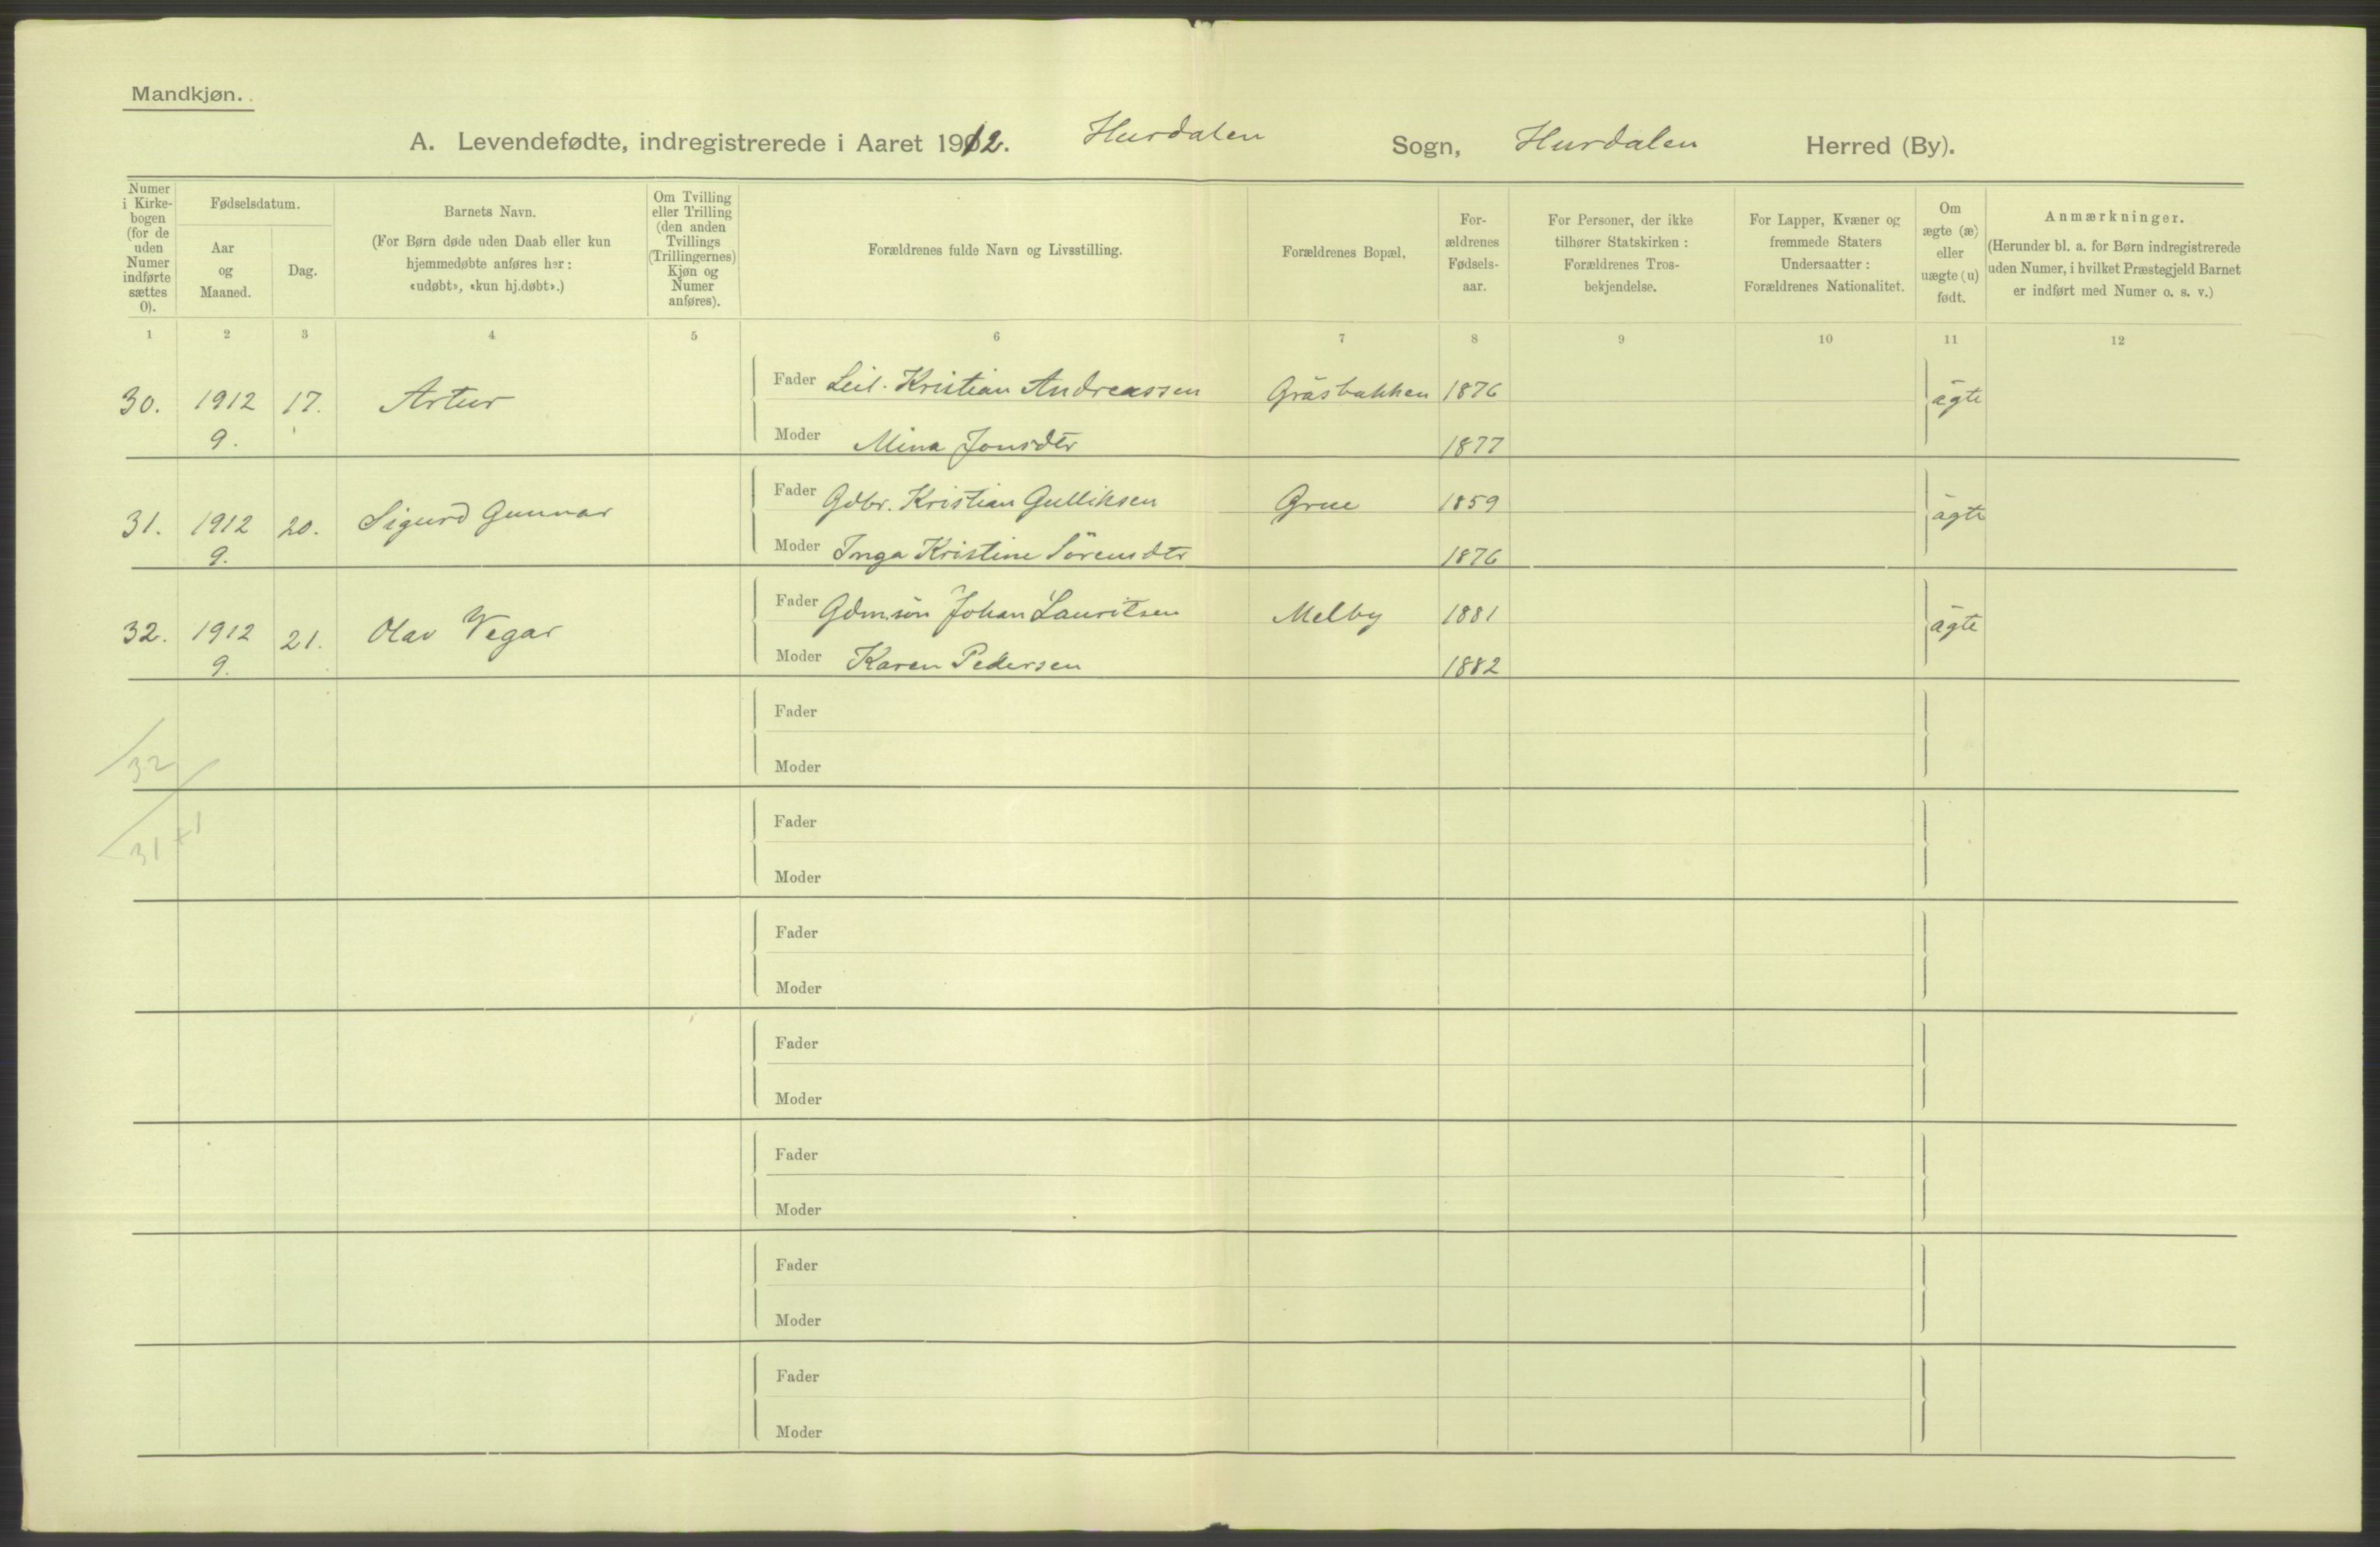 Mandkjøn.
A. Levendefødte, indregistrerede i Aaret 1912. Hurdalen Sogn, Hurdalen Herred (By).
Numer i Kirke-bogen (for de uden Numer indførte sættes 0).
Fødselsdatum.
Aar og Maaned.
Dag.
Barnets Navn.
(For Børn døde uden Daab eller kun hjemmedøbte anføres her: «udøbt», «kun hj.døbt».)
Om Tvilling eller Trilling (den anden Tvillings (Trillingernes) Kjøn og Numer anføres).
Forældrenes fulde Navn og Livsstilling.
Forældrenes Bopæl.
For-ældrenes Fødsels-aar.
For Personer, der ikke tilhører Statskirken: Forældrenes Tros-bekjendelse.
For Lapper, Kvæner og fremmede Staters Undersaatter: Forældrenes Nationalitet.
Om ægte (æ) eller uægte (u) født.
Anmærkninger.
(Herunder bl. a. for Børn indregistrerede uden Numer, i hvilket Præstegjeld Barnet er indført med Numer o. s. v.)
1 2 3 4 5 6 7 8 9 10 11 12
30. 1912 17. Artur Fader Leil. Kristian Andreassen Gräsbakken 1876 ägte
9. Moder Mina Jonsdtr 1877
31. 1912 20. Sigurd Gunnar Fader Gdbr. Kristian Gulliksen Grue 1859 ägte
9. Moder Inga Kristine Sörensdtr 1876
32. 1912 21. Olav Vegar Fader Gdm.sön Johan Lauritsen Melby 1881 ägte
9. Moder Karen Pedersen 1882
Fader
32 Moder
Fader
31 + 1
Moder
Fader
Moder
Fader
Moder
Fader
Moder
Fader
Moder
Fader
Moder